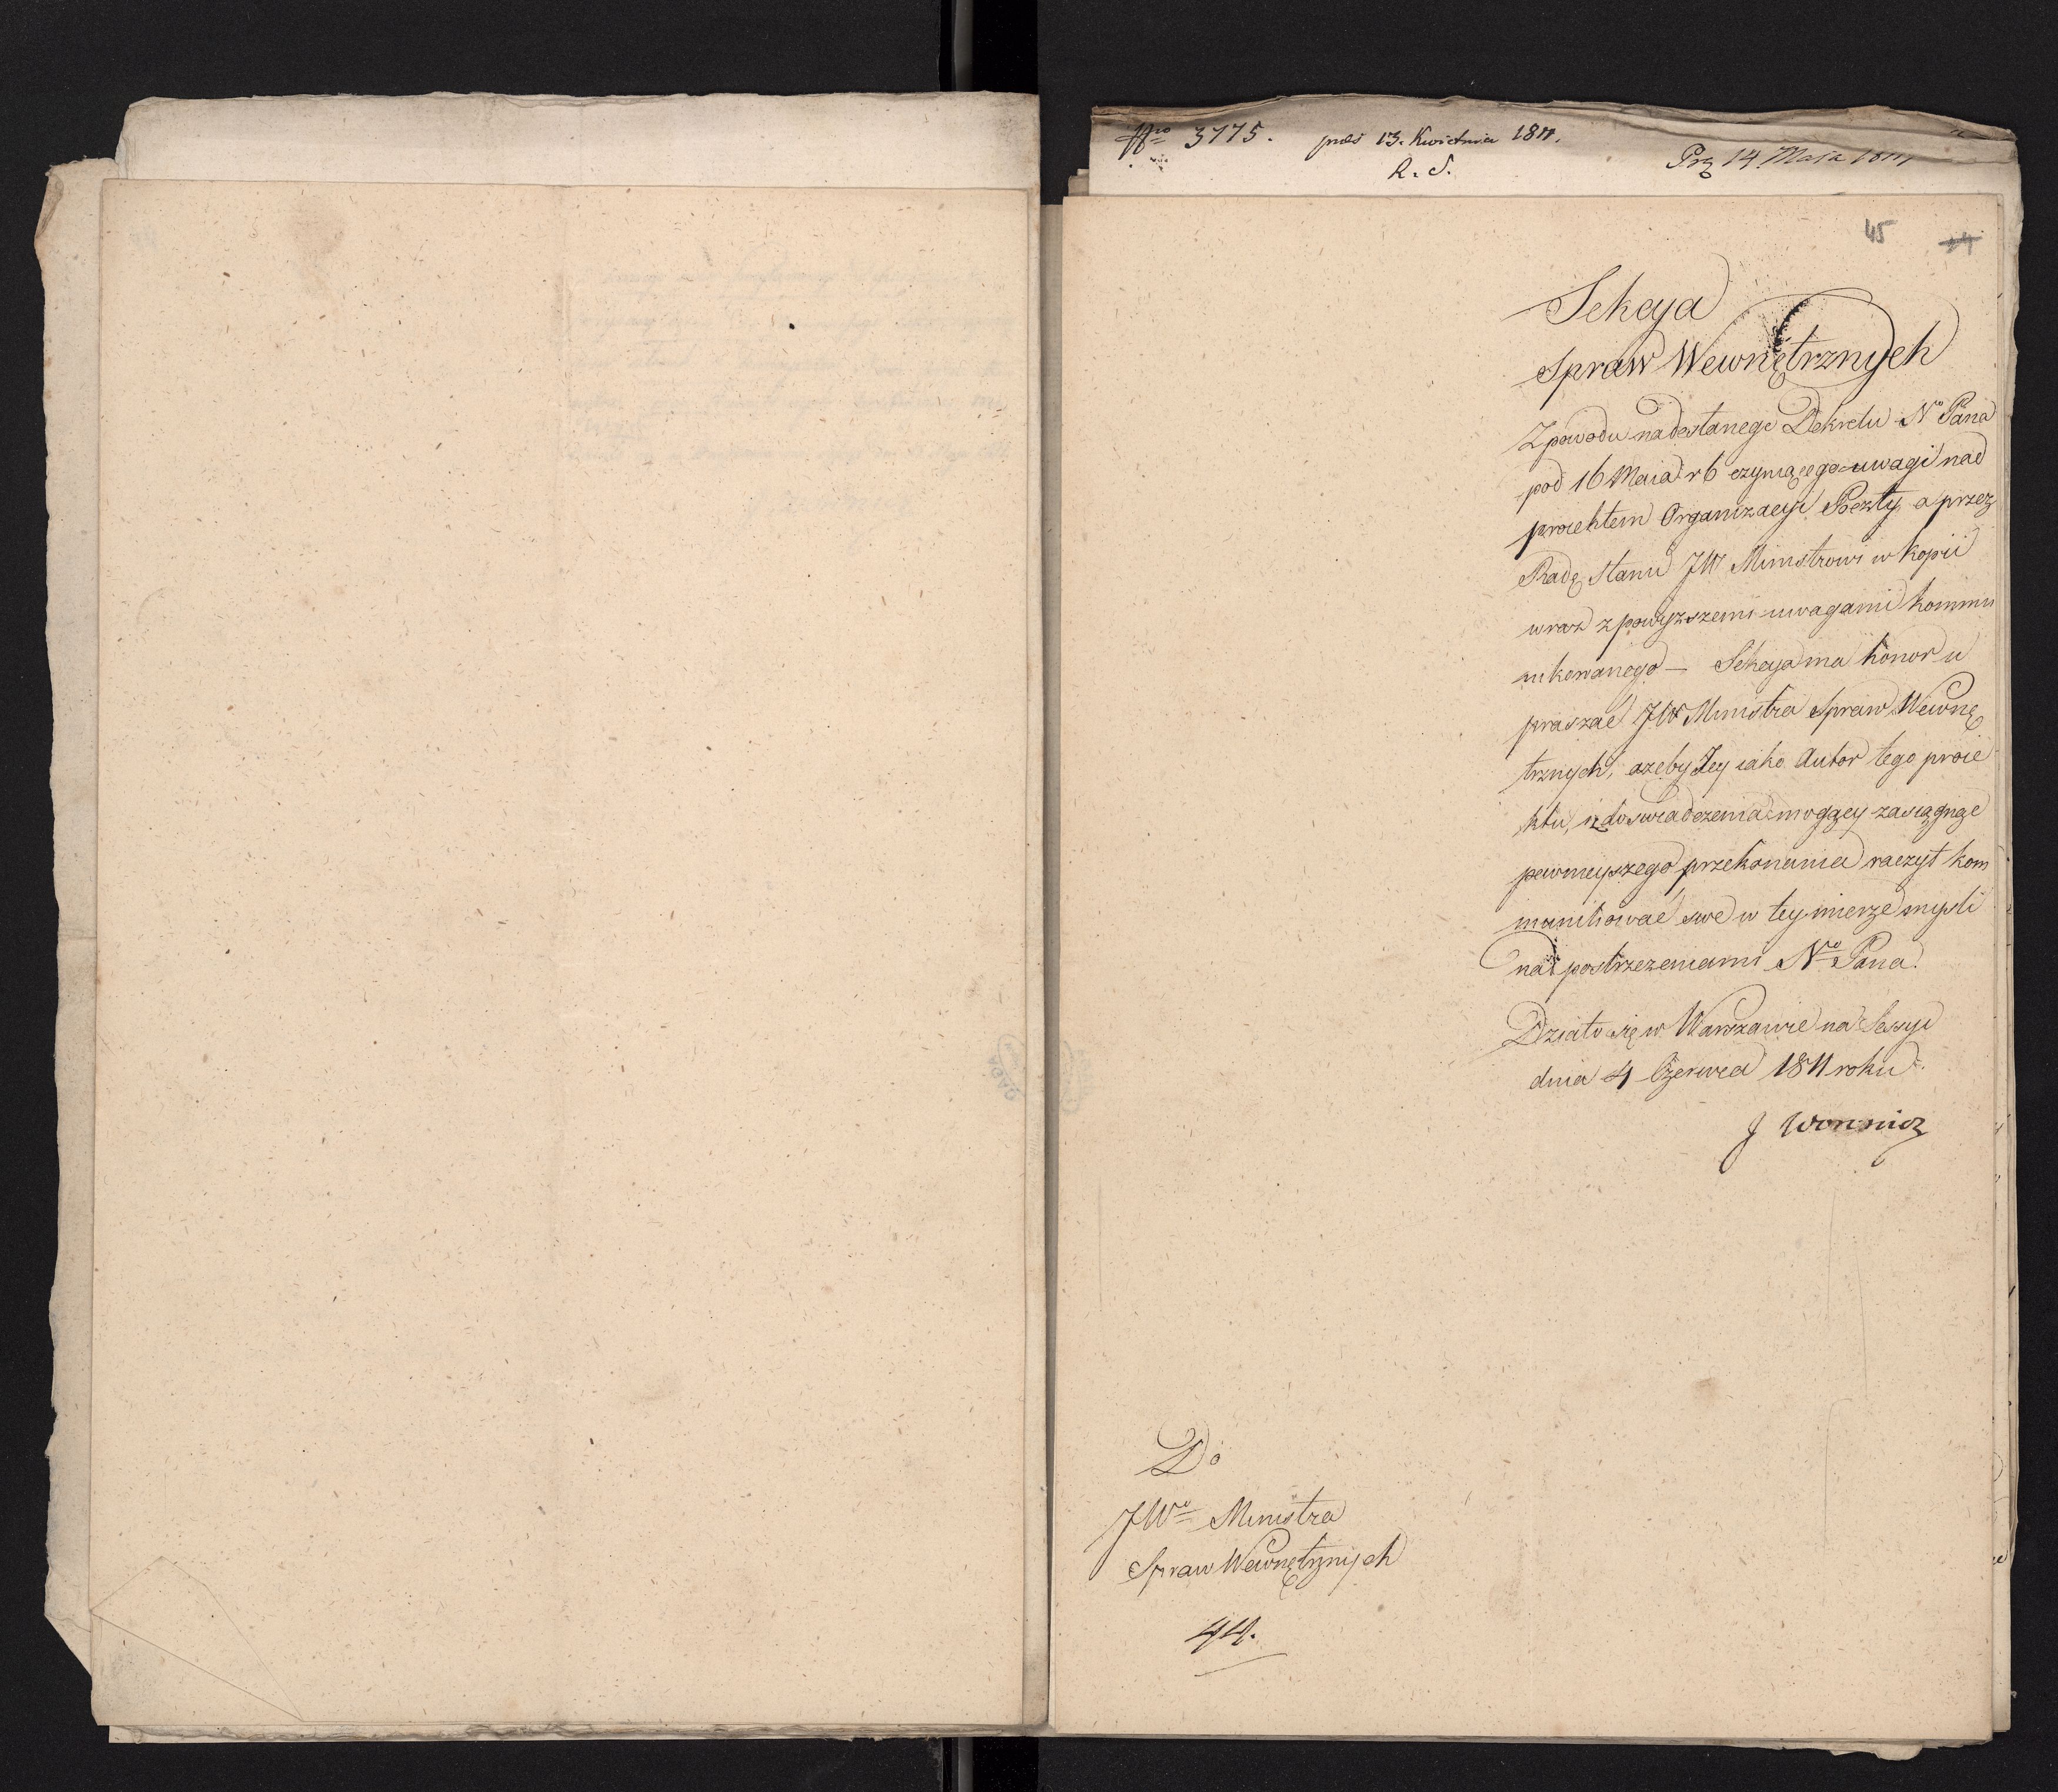 Nro 3775. præs 13. Kwietnia 1811.
R. S.
Prz 14 Maja 1811
45
Sekcya
Spraw Wewnętrznych
Z powodu nadesłanego Dekretu No Pana
pod 16 Maia r b czyniącego uwagi nad
proiektem Organizacyi Poczty, a przez
Radę Stanu JW Ministrowi w kopii
wraz z powyższemi uwagami kommu
nikowanego — Sekcya ma honor u
praszać JW Ministra Spraw Wewnę
trznych, ażeby Jey iako Autor tego proie
ktu, i z doświadczenia mogący zasiągnąć
pewnieyszego przekonania raczył kom
munikować swe w tey mierze myśli
nad postrzeżeniami No Pana.
Działo się w Warszawie na Sessyi
dnia 4 Czerwca 1811 roku.
J Woronicz
Do
JWo Ministra
Spraw Wewnętrznych
44.